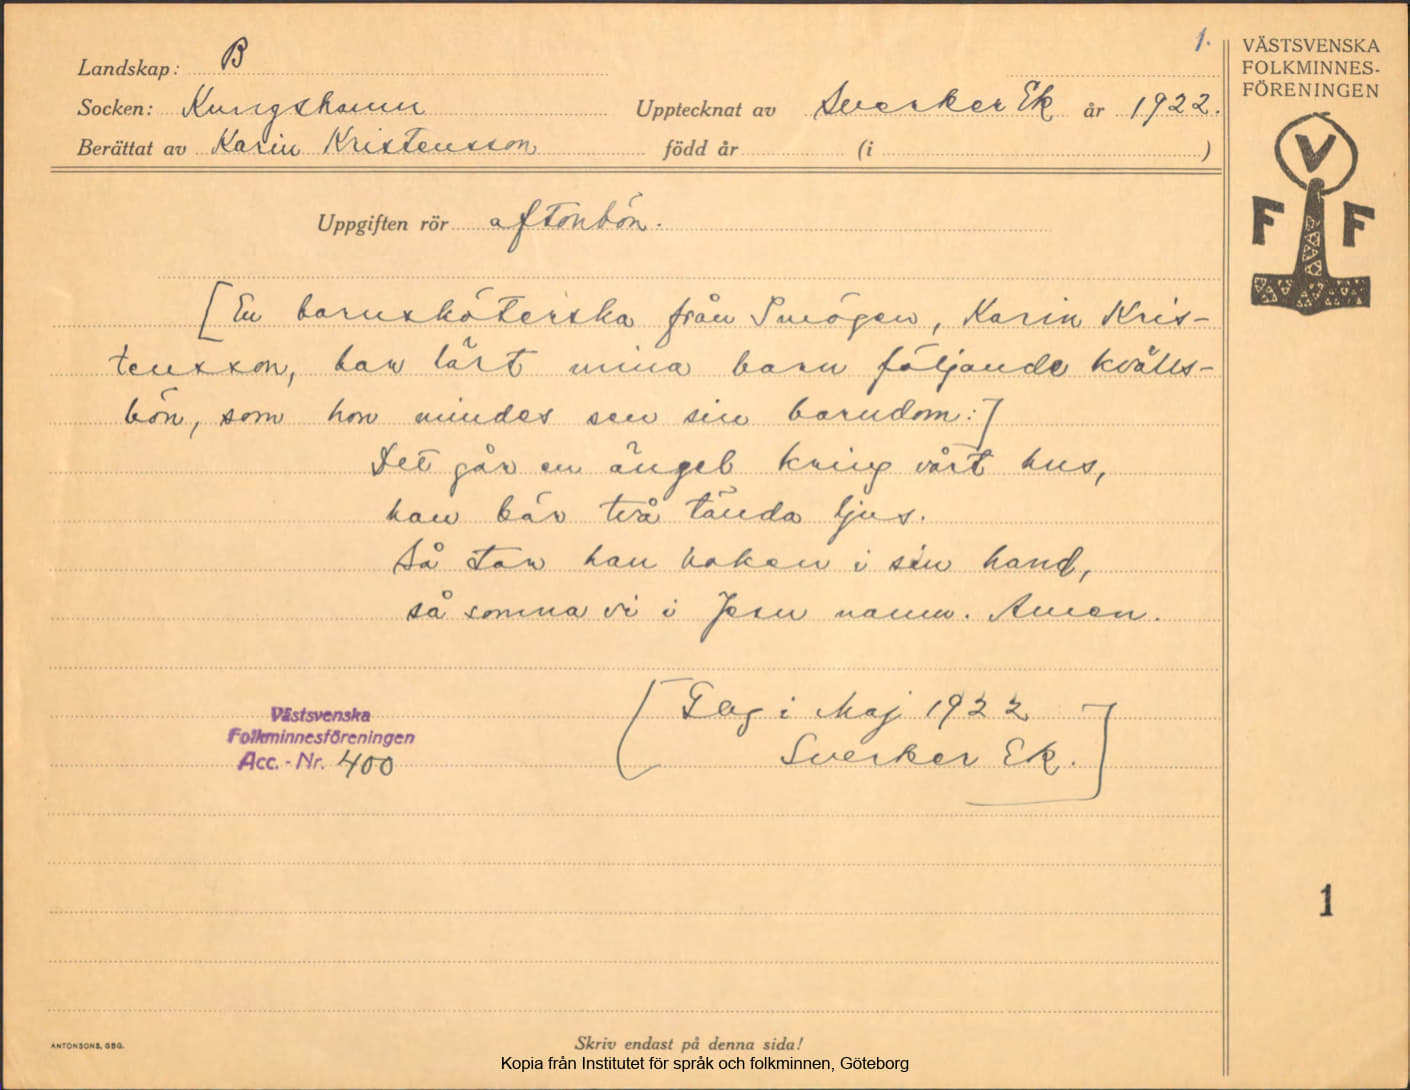 1.
Landskap: B
Socken: Kungshamn Upptecknat av Sverker Ek år 1922.
Berättat av Karin Kristensson född år (i )
VÄSTSVENSKA
FOLKMINNES-
FÖRENINGEN
V
F F
Uppgiften rör aftonbön.
[En barnsköterska från Smögen, Karin Kris-
tensson, har lärt mina barn följande kvälls-
bön, som hon mindes sen sin barndom:]
Det går en ängel kring vårt hus,
han bär två tända ljus.
Så tar han boken i sin hand,
så somna vi i Jesu namn. Amen.
Västsvenska
Folkminnesföreningen
Acc. - Nr. 400
[ Gbg i Maj 1922
Sverker Ek. ]
1
ANTONSONS, GBG.
Skriv endast på denna sida!
Kopia från Institutet för språk och folkminnen, Göteborg